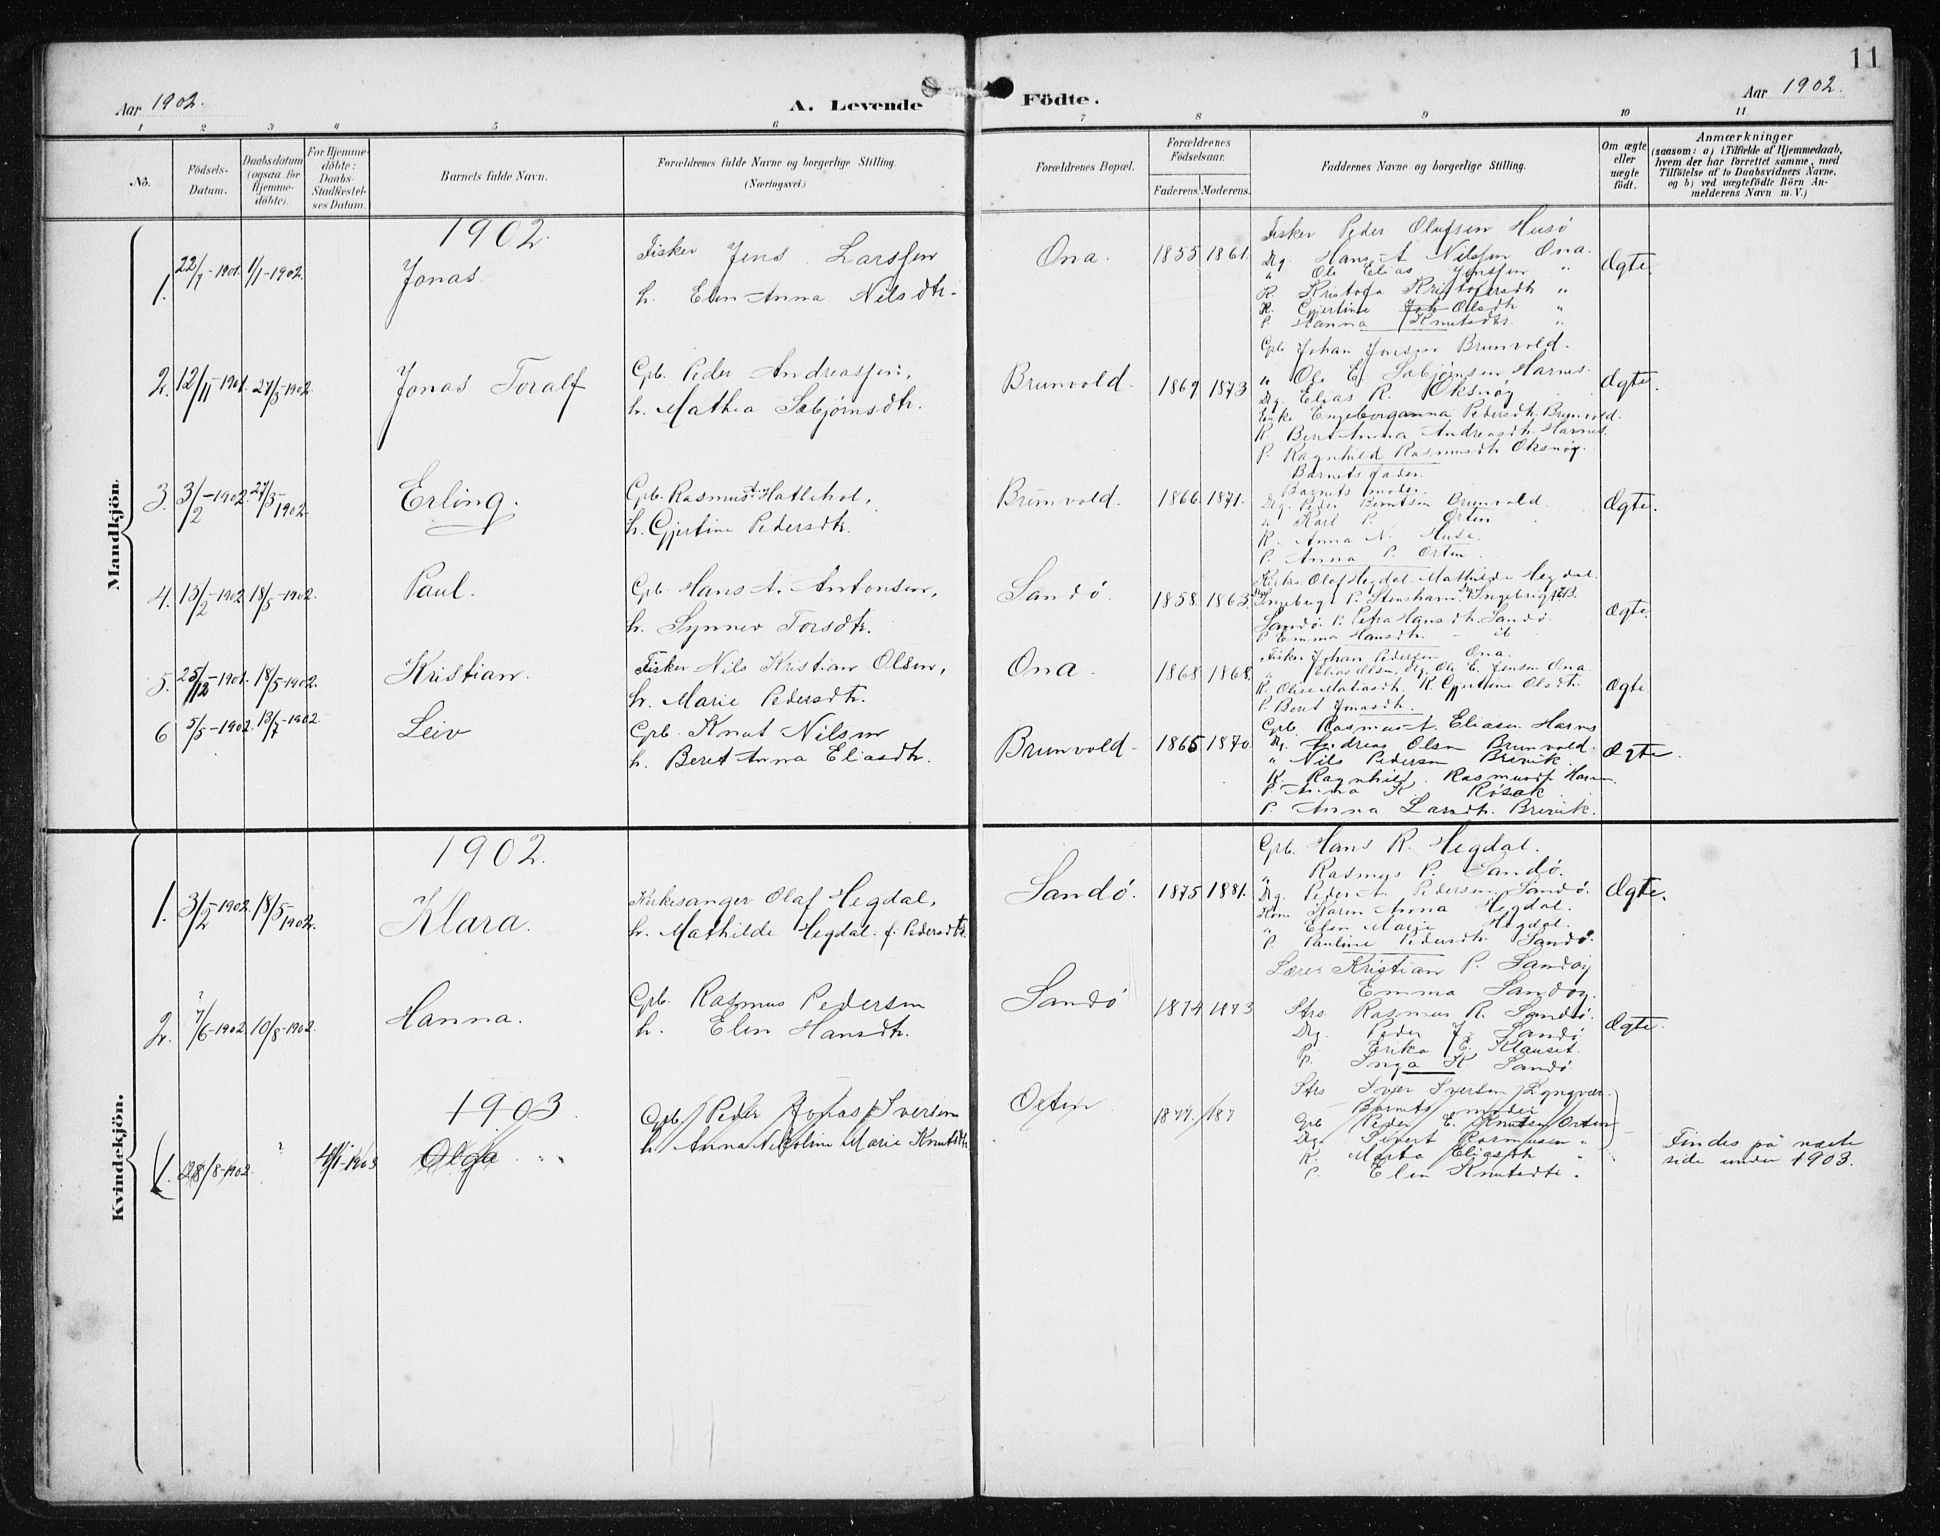 11
Aar 1902.
A. Levende Födte.
Aar 1902.
1 2 3 4 5 6 7 8 9 10 11
No.
Födsels-
Datum.
Daabsdatum
(ogsaa for
Hjemme-
döbte).
For Hjemme-
döbte:
Daabs-
Stadfæstel-
ses Datum.
Barnets fulde Navn.
Forældrenes fulde Navne og borgerlige Stilling.
(Næringsvei.)
Forældrenes Bopæl.
Forældrenes
Födselsaar.
Faderens. Moderens.
Faddernes Navne og borgerlige Stilling.
Om ægte
eller
uægte
födt.
Anmærkninger
(saasom: a) i Tilfælde af Hjemmedaab,
hvem der har forrettet samme, med
Tilföielse af to Daabsvidners Navne,
og b) ved uægtefödte Börn An-
melderens Navn m. V.)
Mandkjön.
1902.
1. 22/7-1901. 1/1-1902.
Jonas.
Fisker Jens Larssen
h. Elen Anna Nilsdtr.
Ona. 1855 1861.
Fisker Peder Olufsen Husö
Drg. Hans A. Nilssen Ona.
" Ole Elias Jenssen "
K. Kristofa Kristofersdtr "
K. Gjertine Olsdtr "
P. Hanna Knutsdtr. "
Ægte.
2. 12/11-1901. 27/3-1902.
Jonas Toralf
Gbr. Peder Andreassen,
h. Mathea Sæbjørnsdtr.
Brunvold. 1869 1873
Gbr. Johan Jonsson Brunvold.
" Ole E. Sæbjørnsen Harnes.
Drg. Elias R. Oksnøg
Enke Engeborganna Pedersdtr. Brunvold.
K. Beret Anna Andreasdtr. Harnes.
P. Ragnhild Rasmusdtr. Oksnøg.
Ægte.
3. 3/2-1902. 27/3-1902.
Erling.
Gbr. Rasmus A. Hatlehol,
h. Gjertine Pedersdtr.
Brunvold. 1866 1871.
Barnets fader.
Barnets moder.
Drg. Peder Berntsen Brunvold.
" Karl P. Orten
K. Anna N. Huse.
P. Anna P. Orten.
Ægte.
4. 15/2-1902. 18/5-1902.
Paul.
Gbr. Hans A. Antonsen,
h. Synnev Torsdtr.
Sandö. 1858. 1863.
Kirkes. Olaf Hegdal. Mathilde Hegdal.
Ingebrigt P. Stenshavn
Sandö. P. Petra Hansdtr. Sandö.
P. Emma Hansdtr. - ib
Ægte.
5. 25/12-1901. 18/5-1902.
Kristian.
Fisker Nils Kristian Olsen,
h. Marie Pedersdtr.
Ona. 1868 1868.
Fisker Johan Pedersen Ona.
" Elias Olsen, Drg. Ole E. Jensen Ona.
K. Oline Matiasdtr. K. Gjertine Olsdtr.
P. Beret Jonasdtr.
Ægte.
6 5/5-1902. 13/7-1902.
Leiv
Gbr. Knut Nilsen
h. Beret Anna Eliasdtr.
Brunvold- 1865 1870.
Gbr. Rasmus A. Eliasen Harnes
Drg. Andreas Olsen Brunvold.
" Nils Pedersen Brevik.
K. Ragnhild Rasmusdtr Harnes
P. Anna K. Røsok
P. Anna Larsdtr. Brevik.
Ægte.
Kvindekjön.
1902.
1. 3/2-1902. 18/5-1902.
Klara.
Kirkesanger Olaf Hegdal,
h. Mathilde Hegdal f. Pedersdtr.
Sandö. 1875 1881.
Gbr. Hans R. Hegdal.
" Rasmus P. Sandö.
Drg. Peder A. Pedersen Sandö.
Kone Karen Anna Hegdal.
" Elen Marie Hegdal.
P. Pauline Pedersdtr. Sandö.
Ægte.
2. 7/6-1902. 10/8-1902.
?
Hanna.
Gbr. Rasmus Pedersen
h. Elen Hansdtr.
Sandö 1874 1873
Lærer Kristian P. Sandöy
Emma Sandöy.
Strs. Rasmus R. Sandö.
Drg. Peder J. Sandö
P. Erika E. Klauset.
P. Inga K Sandö
Ægte.
1903.
1. 28/8-1902. ? 4/1-1903
Olga
Gbr. Peder Jonas Iversen
h. Anna Nikoline Marie Knutsdtr.
Orten 187
Strs Iver Iversen Lyngvær.
Barnets moder
Gbr Peder E. Knutsen Orten
Drg. Sivert Rasmusen "
K. Marta Eliasdtr "
P. Elen Knutsdtr.
Findes på næste
side under 1903.